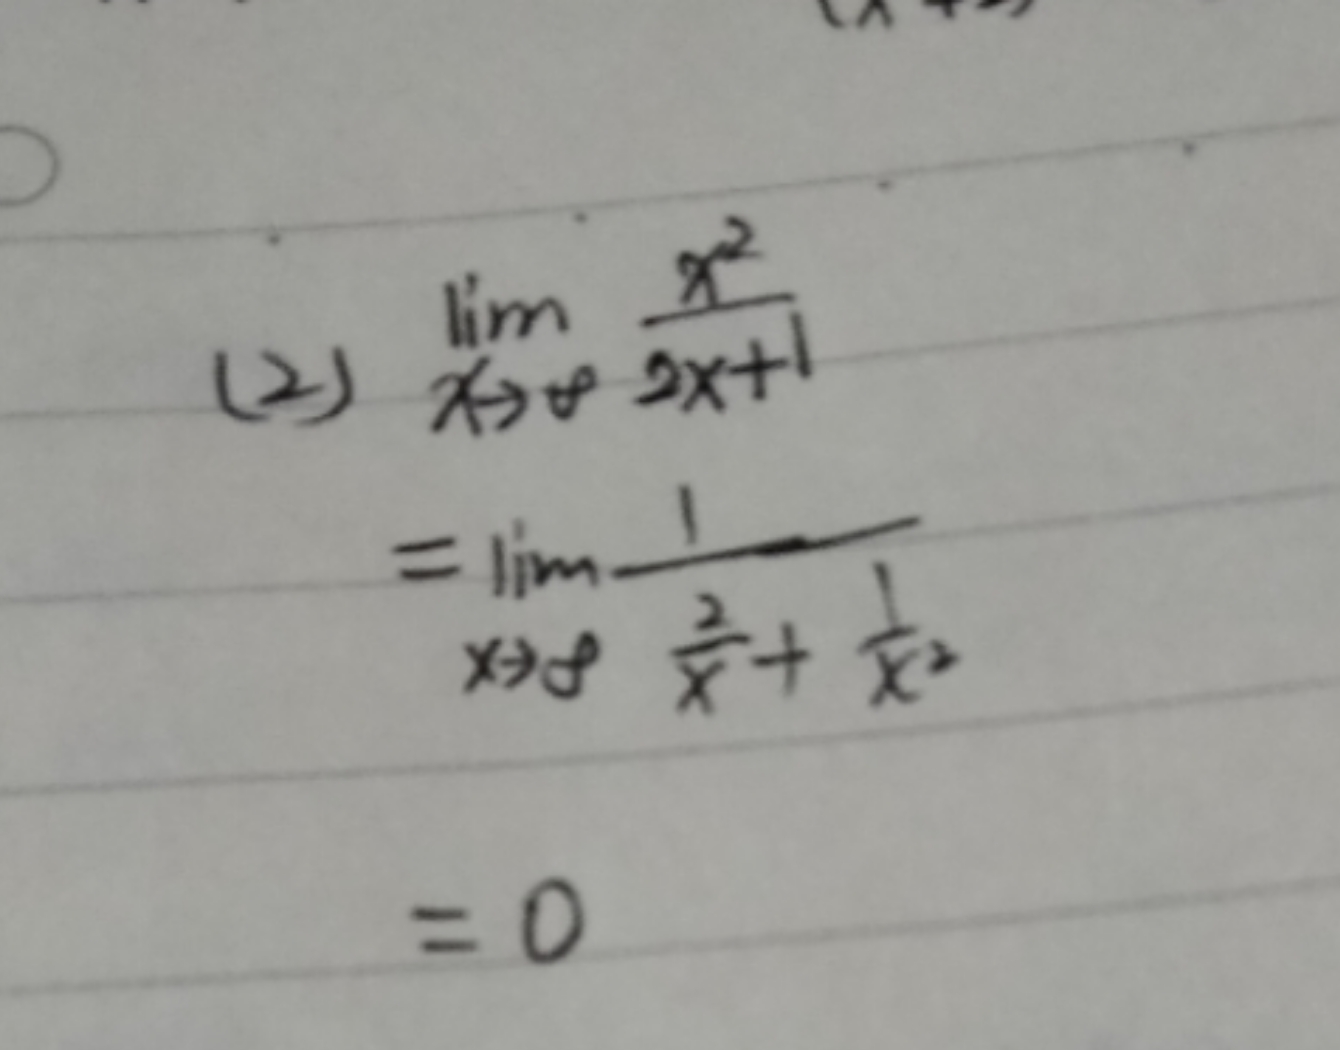 (2) lim x→∞ x²/(2x+1)
= lim x→∞ 1/(2/x + 1/x²)
= 0